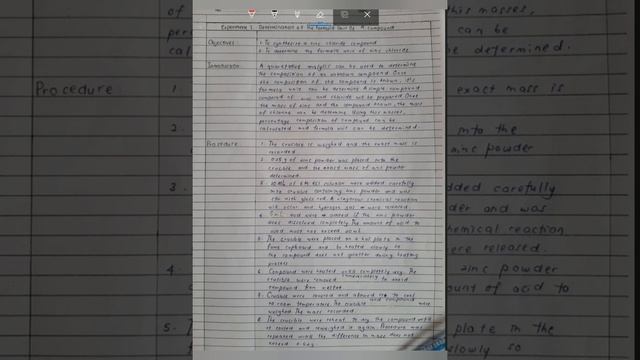 Experiment 1. Determination of the Formula Unit of A compound
Objectives : 1. To synthesize a zinc chloride compound
2. To determine the formula unit of zinc chloride
Introduction A quantitative analysis can be used to determine
the composition of an unknown compound. Once
the composition of the compound is known, it's
formula unit can be determine. A simple compound
composed of zinc and chloride will be prepared. Once
the mass of zinc and the compound known, the mass
of chlorine can be determine. Using this masses,
percentage composition of compound can be
calculated and formula unit can be determined.
Procedure 1. The crucible is weighed and the exact mass is
recorded.
2. 0.25 g of zinc powder was placed into the
crucible and the exact mass of zinc powder
determined.
3. 10 mL of 6 M HCl solution were added carefully
into crucible containing zinc powder and was
stir with glass rod. A vigorous chemical reaction
will occur and hydrogen gas were released.
4. 5 mL acid were added if the zinc powder
does dissolved completely. The amount of acid to
used must not exceed 20 mL.
5. The crucible were placed on a hot plate in the
fume cupboard and be heated slowly so
the compound does not spatter during heating
process.
6. Compound were heated until completely dry. The
crucible were removed immediately to avoid
compound from melted.
7. Crucible were covered and allowed to cool
to room temperature. The crucible and compound were
weighed. The mass recorded.
8. The crucible were reheat to dry the compound until
it cooled and reweighed it again. Procedure was
repeated until the difference in mass does not
exceed 0.02g.
Procedure
1.
2.
3.
4.
5. T
this masses,
can be
be determined.
exact mass is
into the
zinc powder
dded carefully
der and was
hemical reaction
ere released.
zinc powder
ount of acid to
plate in the
slowly so